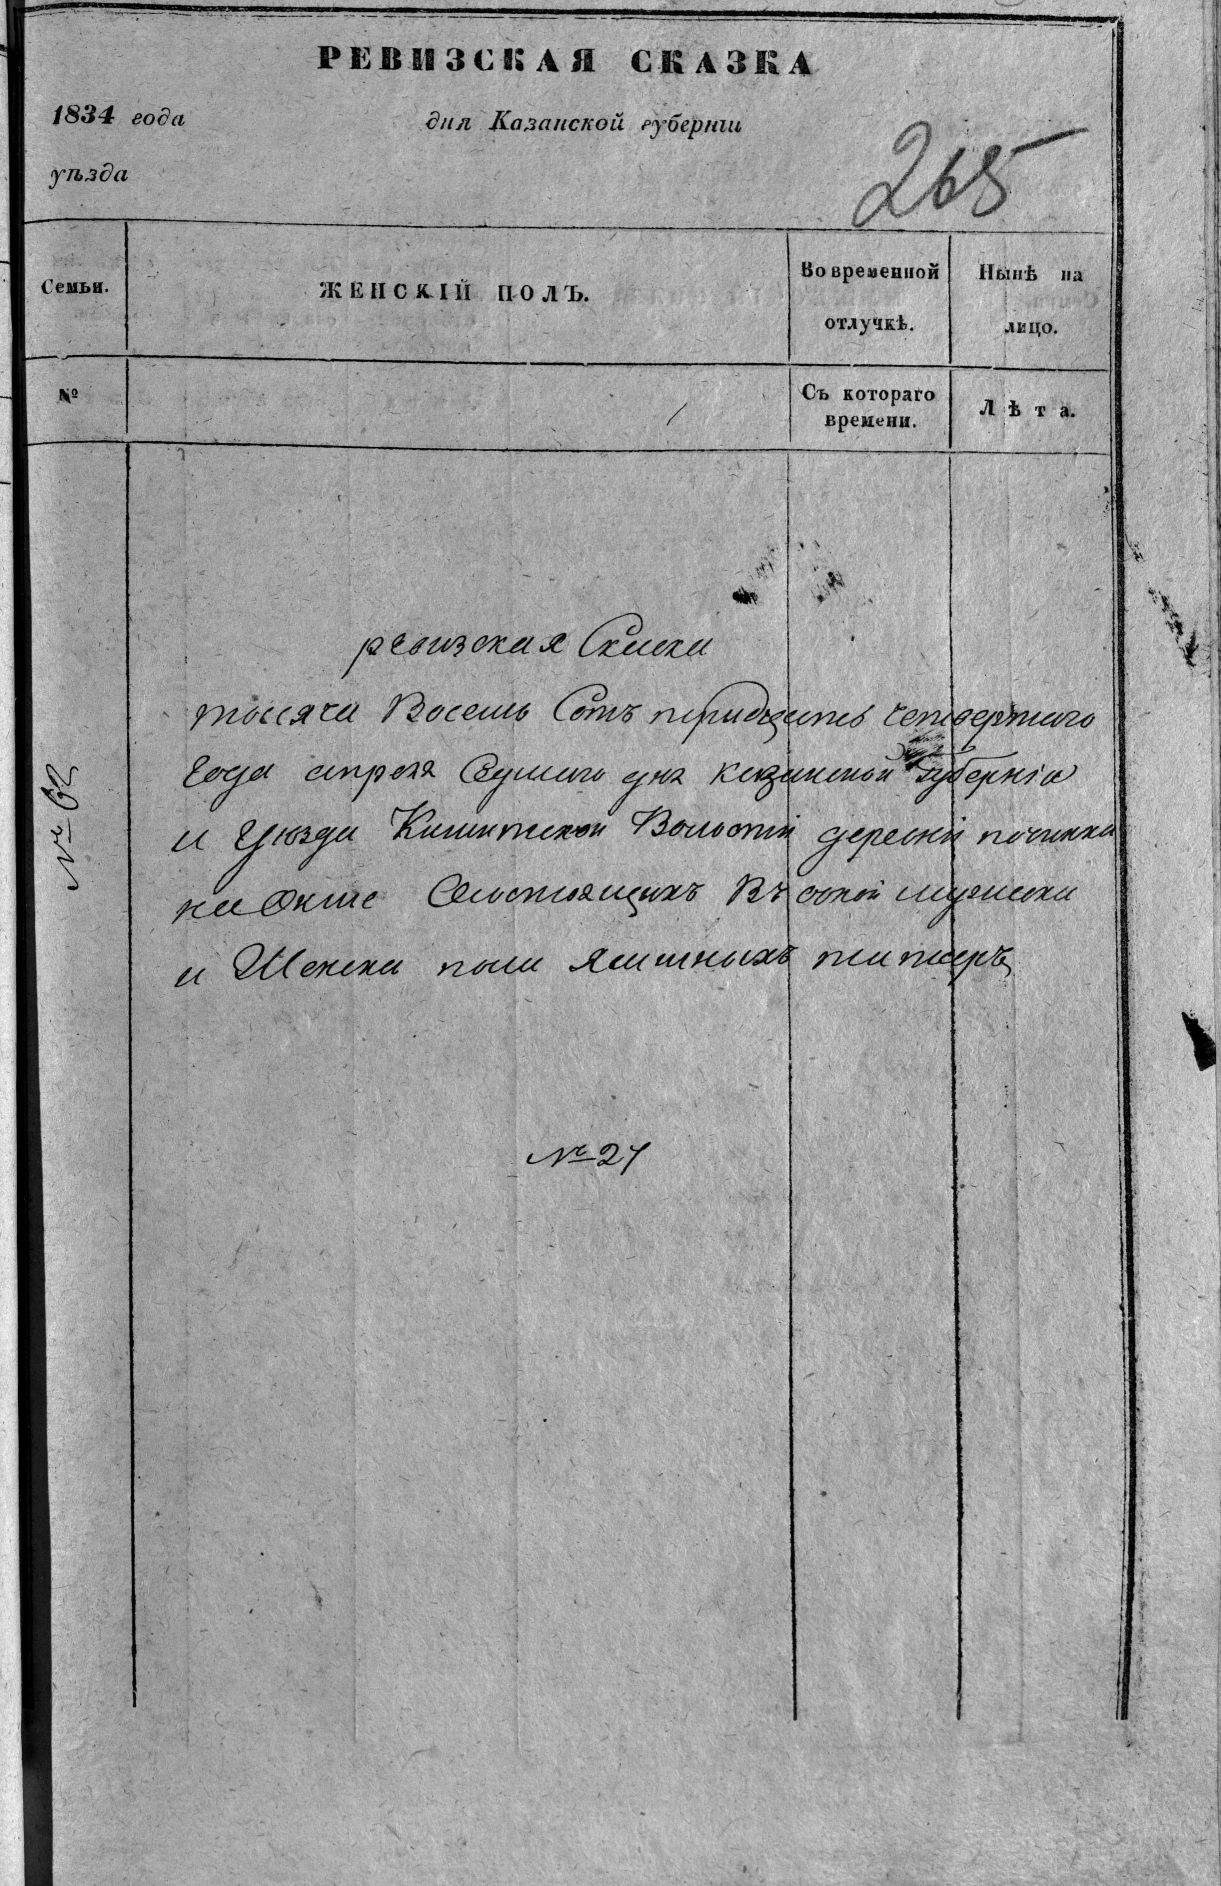 РЕВИЗСКАЯ СКАЗКА
1834 года дня Казанской губерніи
уѣзда
265
Семьи. ЖЕНСКІЙ ПОЛЪ. Во временной отлучкѣ. Нынѣ на лицо.
№ Съ котораго времени. Лѣта.
ревизская Скаска
тысяча Восемь Сотъ тридцать четвертаго
Года апреля Седмаго дня казанской губерніи
и Уюзда Кишитской Волости деревни починка
на Окше Состоящихъ Въ оной мужеска
и Женска пола Ясашныхъ татаръ
№ 62